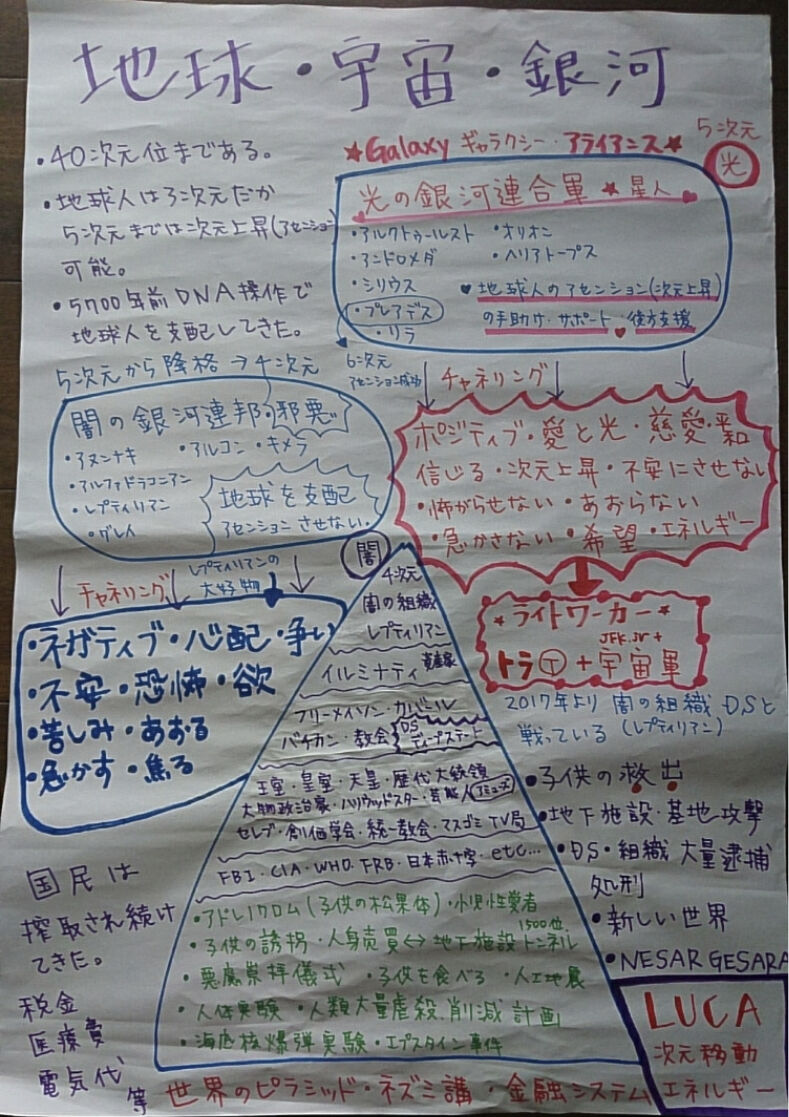 地球・宇宙・銀河
・40次元位まである。
・地球人は3次元だが
5次元までは次元上昇(アセンション)
可能。
・5700年前DNA操作で
地球人を支配してきた。
★Galaxy ギャラクシー・アライアンス★
5次元
光
光の銀河連合軍 ★星人
・アルクトゥールスト ・オリオン
・アンドロメダ ・ヘリアトープス
・シリウス
・プレアデス
・リラ
♥地球人のアセンション(次元上昇)
の手助け・サポート・後方支援
6次元
アセンション成功
チャネリング
5次元から降格→4次元
闇の銀河連邦・邪悪
・アヌンナキ ・アルコン・キメラ
・アルファドラコニアン
・レプティリアン
・グレイ
地球を支配
アセンションさせない。
ポジティブ・愛と光・慈愛・平和
信じる・次元上昇・不安にさせない
・怖がらせない・あおらない
・急かさない・希望・エネルギー
チャネリング
レプティリアンの
大好物
・ネガティブ・心配・争い
・不安・恐怖・欲
・苦しみ・あおる
・急かす・焦る
闇
4次元
闇の組織
レプティリアン
イルミナティ 資産家
フリーメイソン・カバール
バチカン・教会
DS
ディープステート
王室・皇室・天皇・歴代大統領
大物政治家・ハリウッドスター・芸能人
セレブ・創価学会・統一教会・マスゴミTV局
FBI・CIA・WHO・FRB・日本赤十字・etc…
・アドレノクロム(子供の松果体)・小児性愛者
1500位
・子供の誘拐・人身売買↔地下施設トンネル
・悪魔崇拝儀式 ・子供を食べる ・人工地震
・人体実験 ・人類大量虐殺.削減計画
・海底核爆弾実験・エプスタイン事件
★ライトワーカー★
JFK.Jr+
トラⓉ+宇宙軍
2017年より 闇の組織 DSと
戦っている(レプティリアン)
・子供の救出
・地下施設・基地攻撃
・DS・組織 大量逮捕
処刑
・新しい世界
・NESARA GESARA
国民は
搾取され続け
てきた。
税金
医療費
電気代
等
世界のピラミッド・ネズミ講・金融システム
LUCA
次元移動
エネルギー